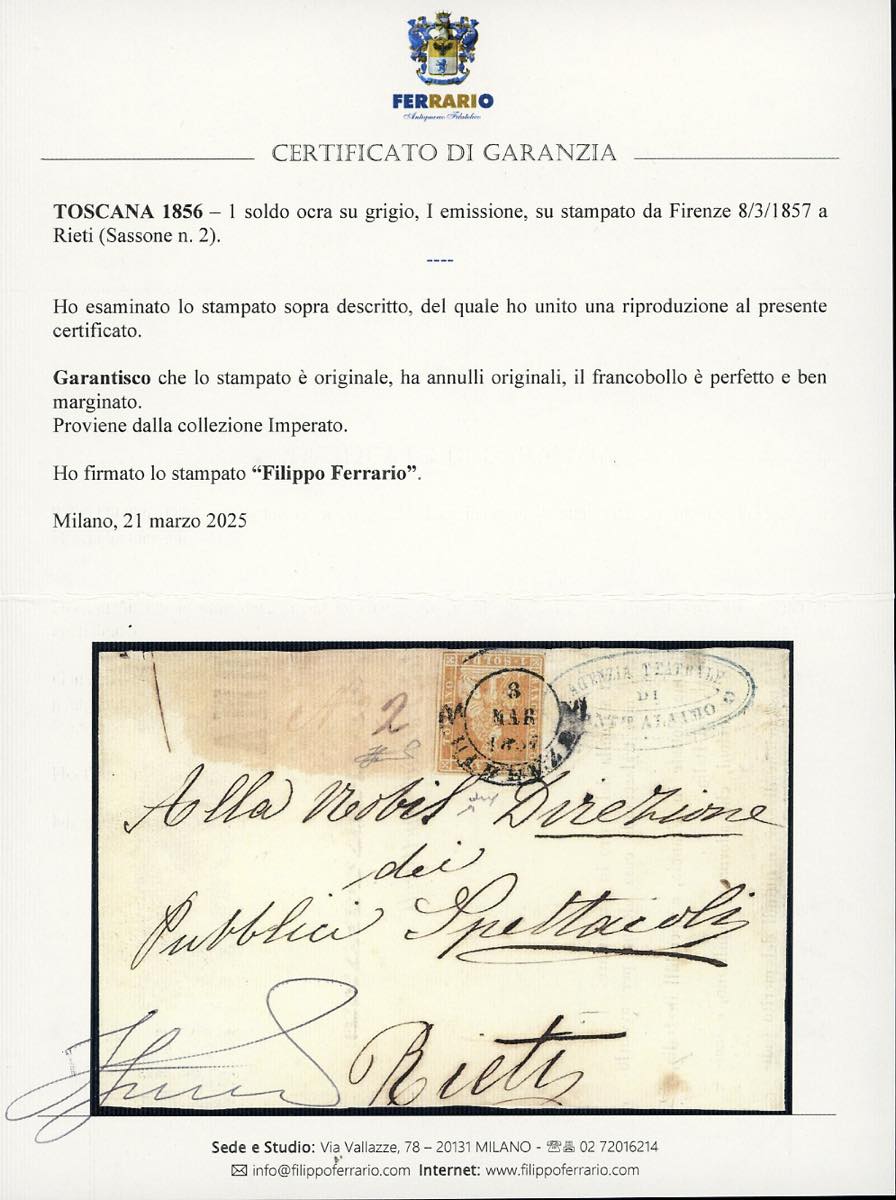 FERRARIO
Antiquario Filatelico
CERTIFICATO DI GARANZIA
TOSCANA 1856 – 1 soldo ocra su grigio, I emissione, su stampato da Firenze 8/3/1857 a
Rieti (Sassone n. 2).
----
Ho esaminato lo stampato sopra descritto, del quale ho unito una riproduzione al presente
certificato.
Garantisco che lo stampato è originale, ha annulli originali, il francobollo è perfetto e ben
marginato.
Proviene dalla collezione Imperato.
Ho firmato lo stampato “Filippo Ferrario”.
Milano, 21 marzo 2025
2
8
MAR
1857
FIRENZE
AGENZIA TEATRALE
DI
ALAIMO
Alla Nobil Direzione
dei
Pubblici Spettacoli
Rieti
Sede e Studio: Via Vallazze, 78 – 20131 MILANO - ☏ 02 72016214
✉ info@filippoferrario.com Internet: www.filippoferrario.com